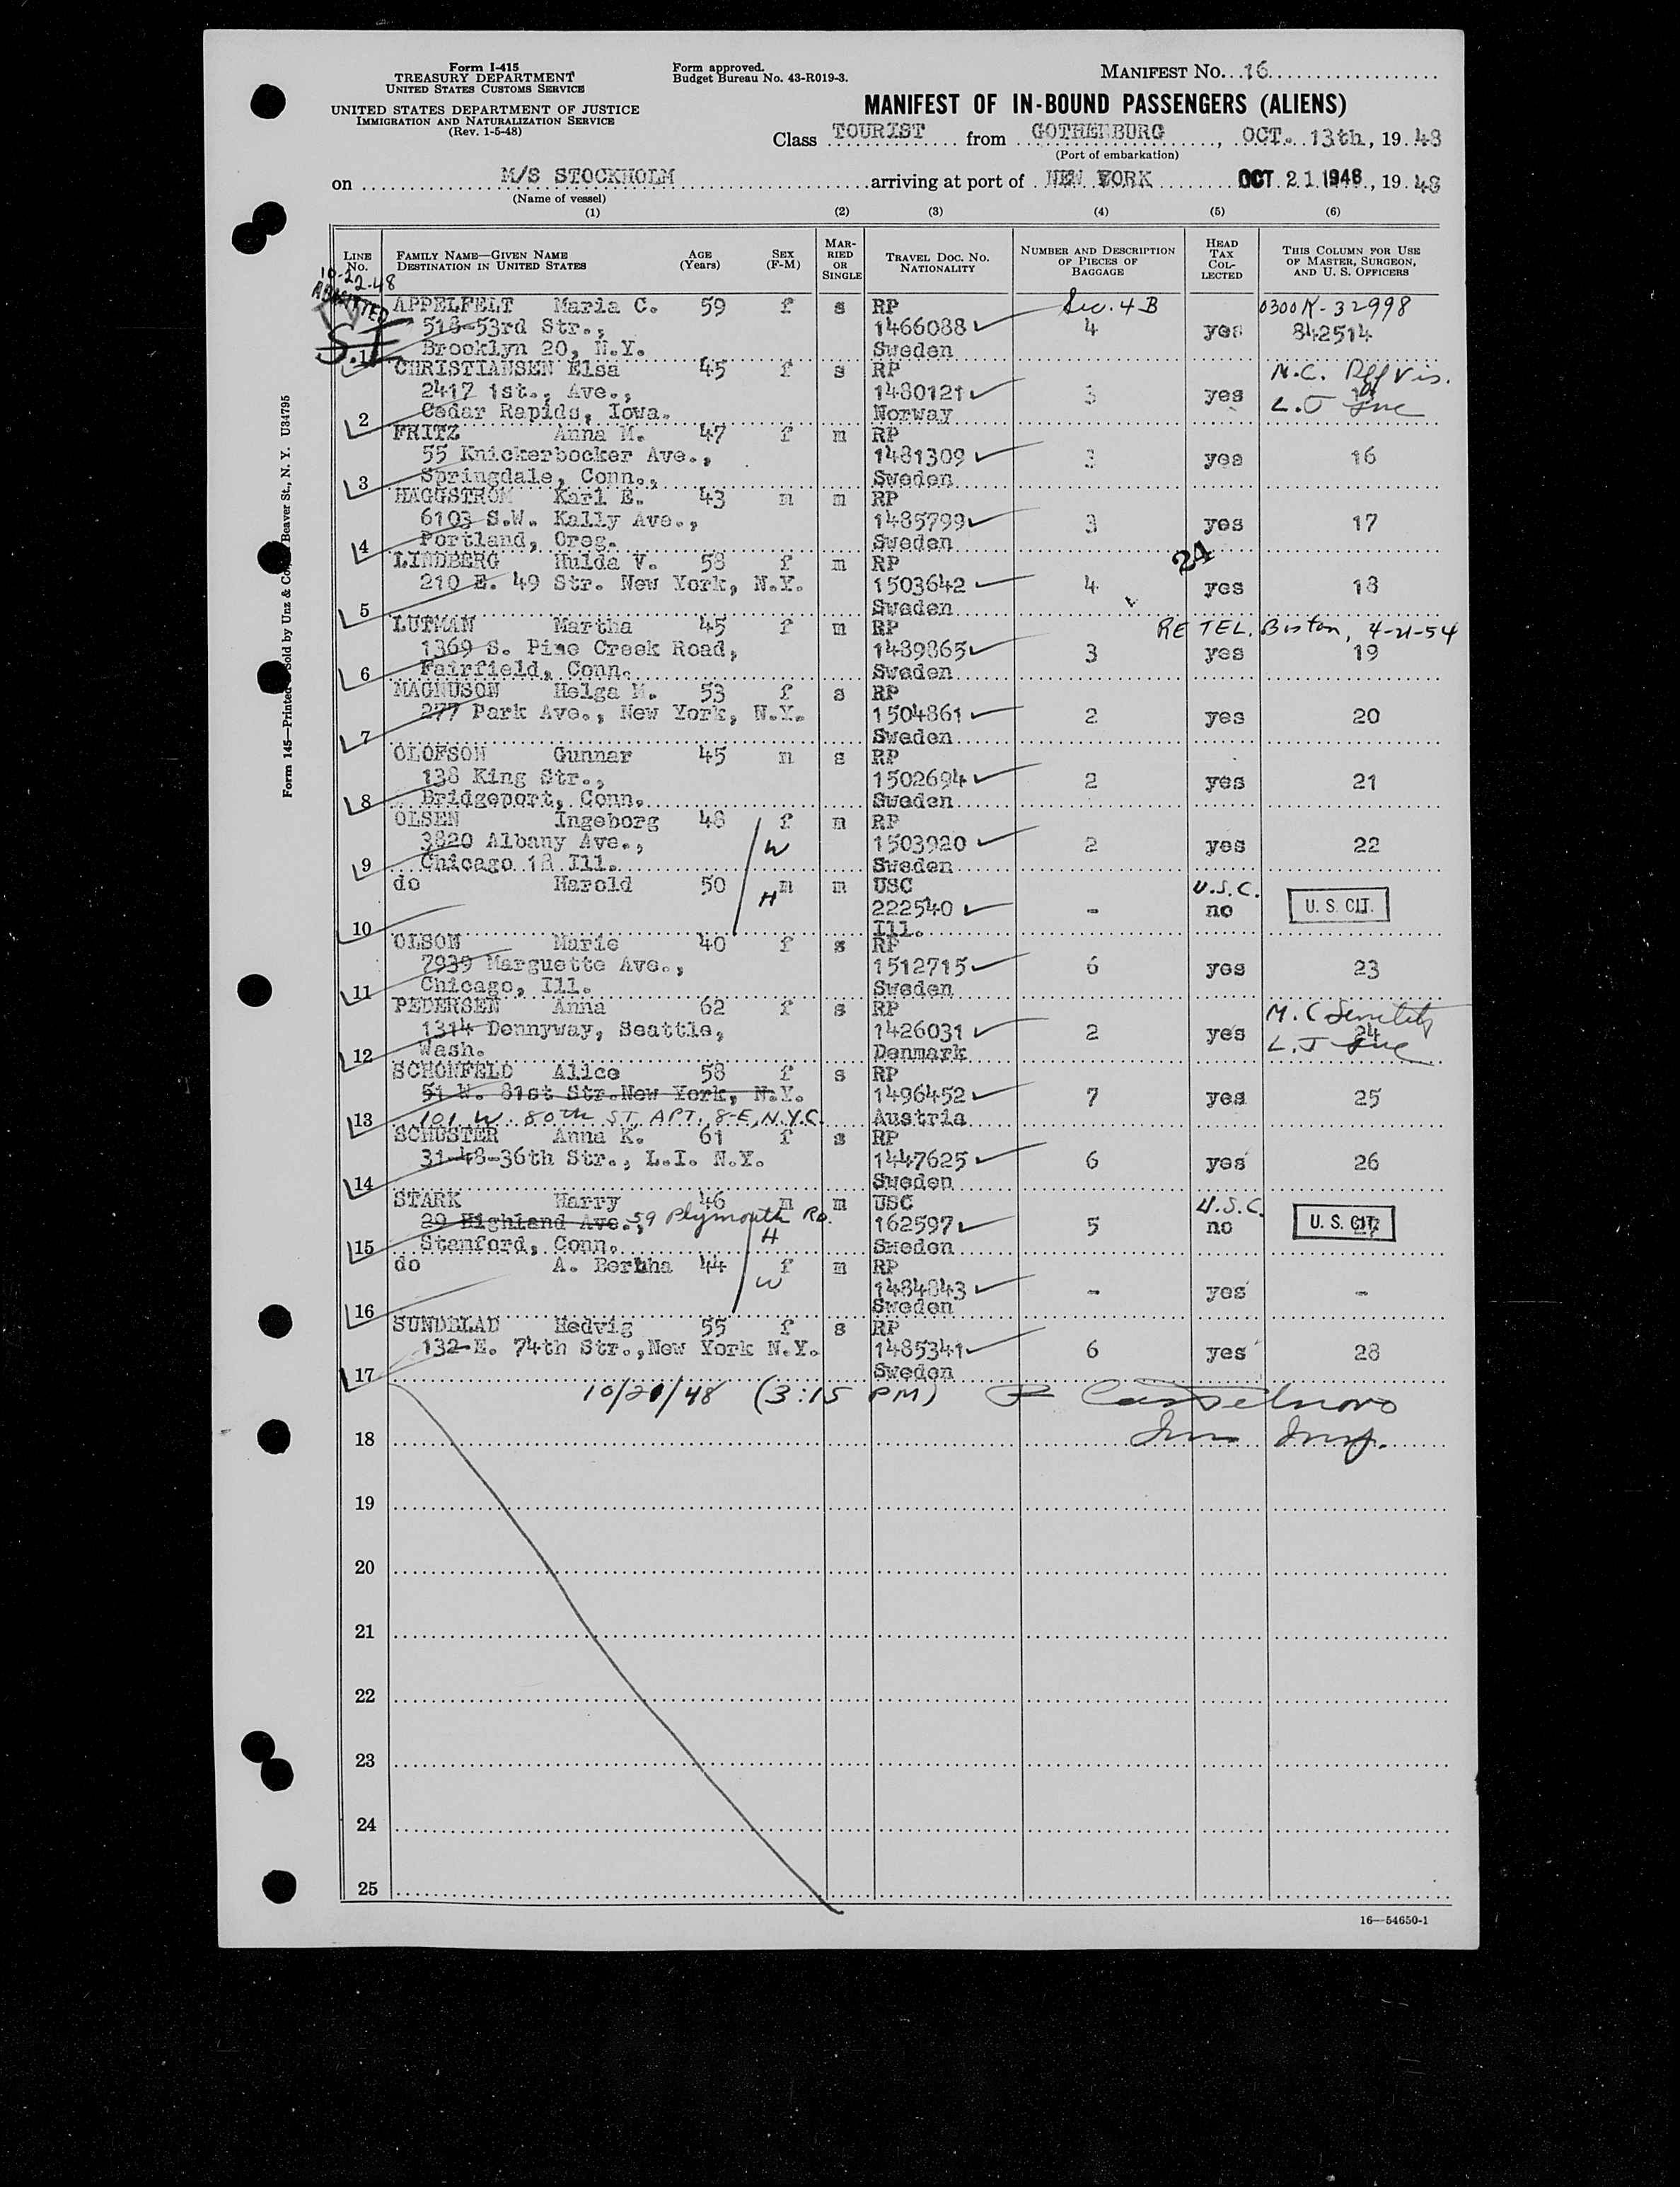 Form I-415
TREASURY DEPARTMENT
UNITED STATES CUSTOMS SERVICE
UNITED STATES DEPARTMENT OF JUSTICE
IMMIGRATION AND NATURALIZATION SERVICE
(Rev. 1-5-48)
Form approved.
Budget Bureau No. 43-R019-3.
MANIFEST NO. 16
MANIFEST OF IN-BOUND PASSENGERS (ALIENS)
Class TOURIST from GOTHENBURG, OCT. 13th, 19 48
(Port of embarkation)
on M/S STOCKHOLM arriving at port of NEW YORK OCT 21 1948, 19 48
(Name of vessel)
(1) (2) (3) (4) (5) (6)
LINE No. FAMILY NAME—GIVEN NAME DESTINATION IN UNITED STATES AGE (Years) SEX (F-M) MARRIED OR SINGLE TRAVEL DOC. NO. NATIONALITY NUMBER AND DESCRIPTION OF PIECES OF BAGGAGE HEAD TAX COLLECTED THIS COLUMN FOR USE OF MASTER, SURGEON, AND U. S. OFFICERS
10-22-48
ADMITTED
S.I
APPELFELT Maria C. 59 f s RP Sec. 4-B 0300K-32998
518-53rd Str., 1466088 4 yes 842514
1 Brooklyn 20, N.Y. Sweden
CHRISTIANSEN Elsa 45 f s RP M.C. Def Vis.
2417 1st., Ave., 1480121 3 yes
2 Cedar Rapids, Iowa. Norway L.J
FRITZ Anna M. 47 f m RP
55 Knickerbocker Ave., 1481309 3 yes 16
3 Springdale, Conn., Sweden
HAGGSTROM Karl E. 43 m m RP
6103 S.W. Kally Ave., 1485799 3 yes 17
4 Portland, Oreg. Sweden
24
LINDBERG Hulda V. 58 f m RP
210 E. 49 Str. New York, N.Y. 1503642 4 yes 18
5 Sweden
LUTMAN Martha 45 f m RP RE TEL. Boston, 4-21-54
1369 S. Pine Creek Road, 1489865 3 yes 19
6 Fairfield, Conn. Sweden
MAGNUSON Helga M. 53 f s RP
277 Park Ave., New York, N.Y. 1504861 2 yes 20
7 Sweden
OLOFSON Gunnar 45 m s RP
138 King Str., 1502694 2 yes 21
8 Bridgeport, Conn. Sweden
OLSEN Ingeborg 48 f m RP
3820 Albany Ave., W 1503920 2 yes 22
9 Chicago 18 Ill. Sweden
do Harold 50 m m USC U.S.C.
H 222540 - no U. S. CIT.
10 Ill.
OLSON Marie 40 f s RP
7939 Marguette Ave., 1512715 6 yes 23
11 Chicago, Ill. Sweden
PEDERSEN Anna 62 f s RP M.C Senility
1314 Dennyway, Seattle, 1426031 2 yes 24
12 Wash. Denmark L.J
SCHONFELD Alice 58 f s RP
51 W. 81st Str. New York, N.Y. 1496452 7 yes 25
13 101 W. 80th ST, APT. 8-E, N.Y.C. Austria
SCHUSTER Anna K. 61 f s RP
31-48-36th Str., L.I. N.Y. 1447625 6 yes 26
14 Sweden
STARK Harry 46 m m USC U.S.C.
29 Highland Ave., 59 Plymouth RD. 162597 5 no 27 U. S. CIT.
15 Stanford, Conn. H Sweden
do A. Bertha 44 f m RP
W 1484843 - yes -
16 Sweden
SUNDBLAD Hedvig 55 f s RP
132 E. 74th Str., New York N.Y. 1485341 6 yes 28
17 Sweden
10/21/48 (3:15 PM)
18 Imm Insp.
19
20
21
22
23
24
25
16—54650-1
Form 145—Printed Sold by Unz & Co. Beaver St., N. Y. U34795